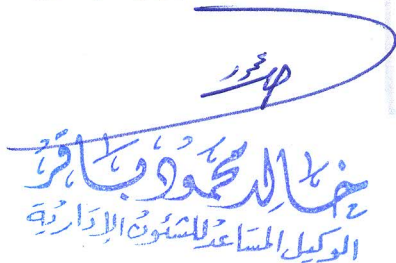 خالد محمود باقر
الوكيل المساعد للشئون الإدارية